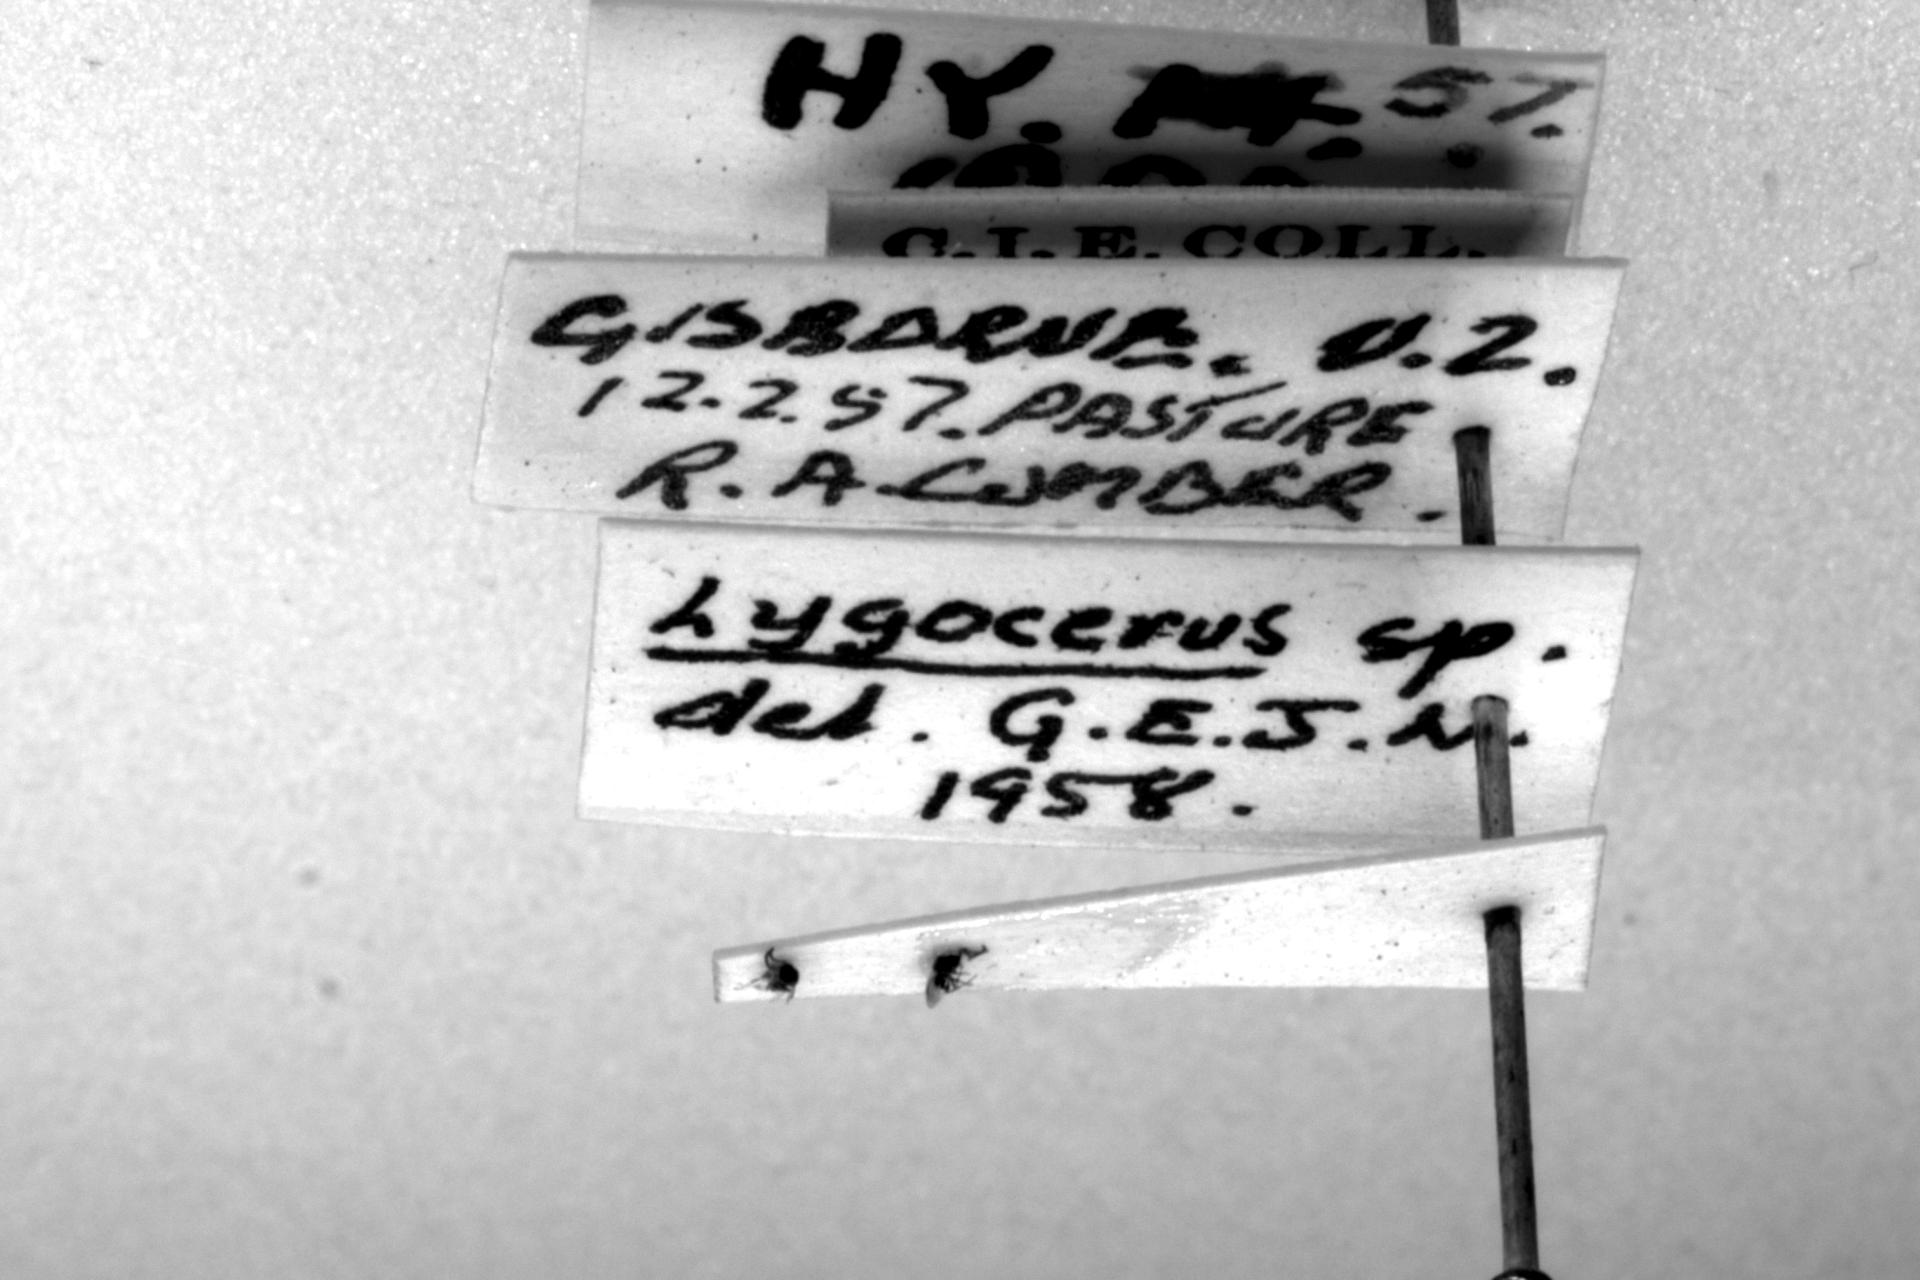 HY. 57.
C.I.E. COLL.
GISBORNE. N.Z.
12.2.57. PASTURE
R.A. CUMBER.
Lygocerus sp.
det. G.E.J.N.
1958.